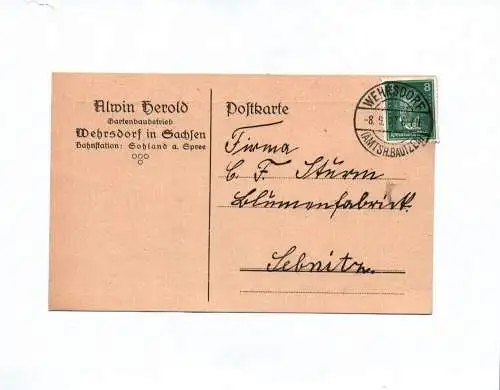 Alwin Herold
Gartenbaubetrieb
Wehrsdorf in Sachsen
Bahnstation: Sohland a. Spree
Postkarte
8
WEHRSDORF
-8. 9.
(AMTSH. BAUTZEN)
Firma
C. F. Sturm
Blumenfabrick.
Sebnitz.